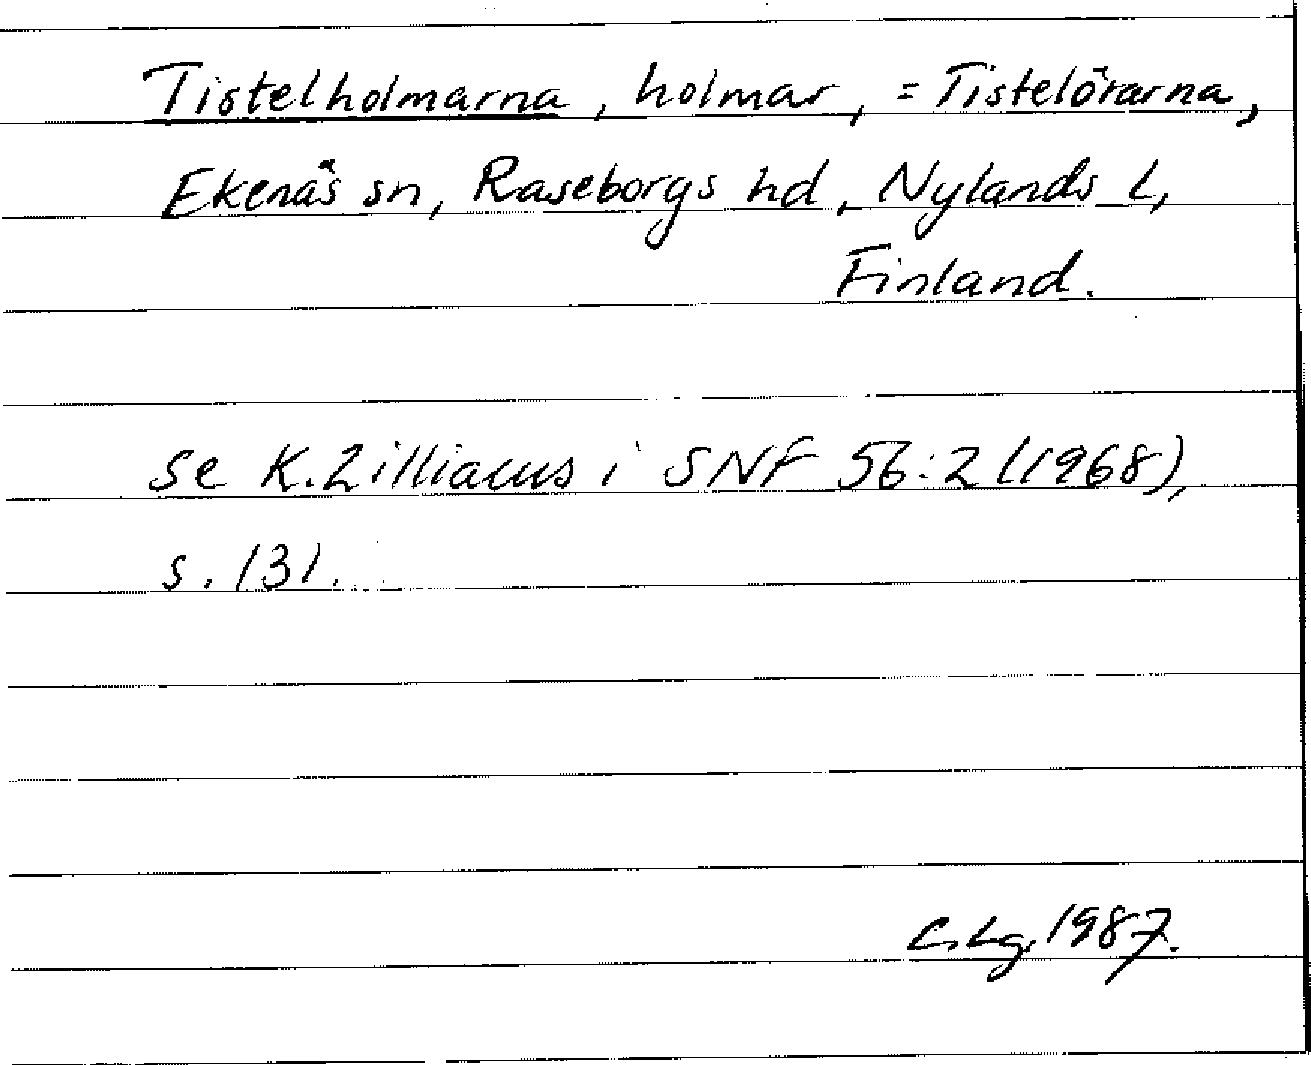 Tistelholmarna, holmar, = Tistelörarna,
Ekenäs sn, Raseborgs hd, Nylands l,
Finland.
se K. Zilliacus i SNF 56:2 (1968),
s. 131.
C.Lg. 1987.